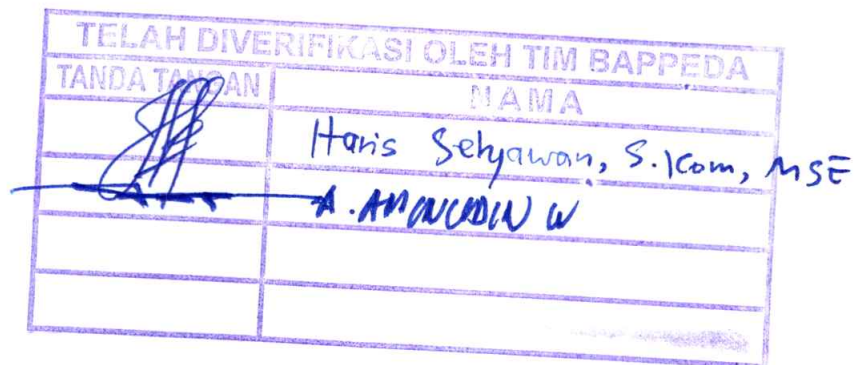 TELAH DIVERIFIKASI OLEH TIM BAPPEDA
TANDA TANGAN NAMA
Haris Setyawan, S.Kom, MSE
A. AMINUDIN W